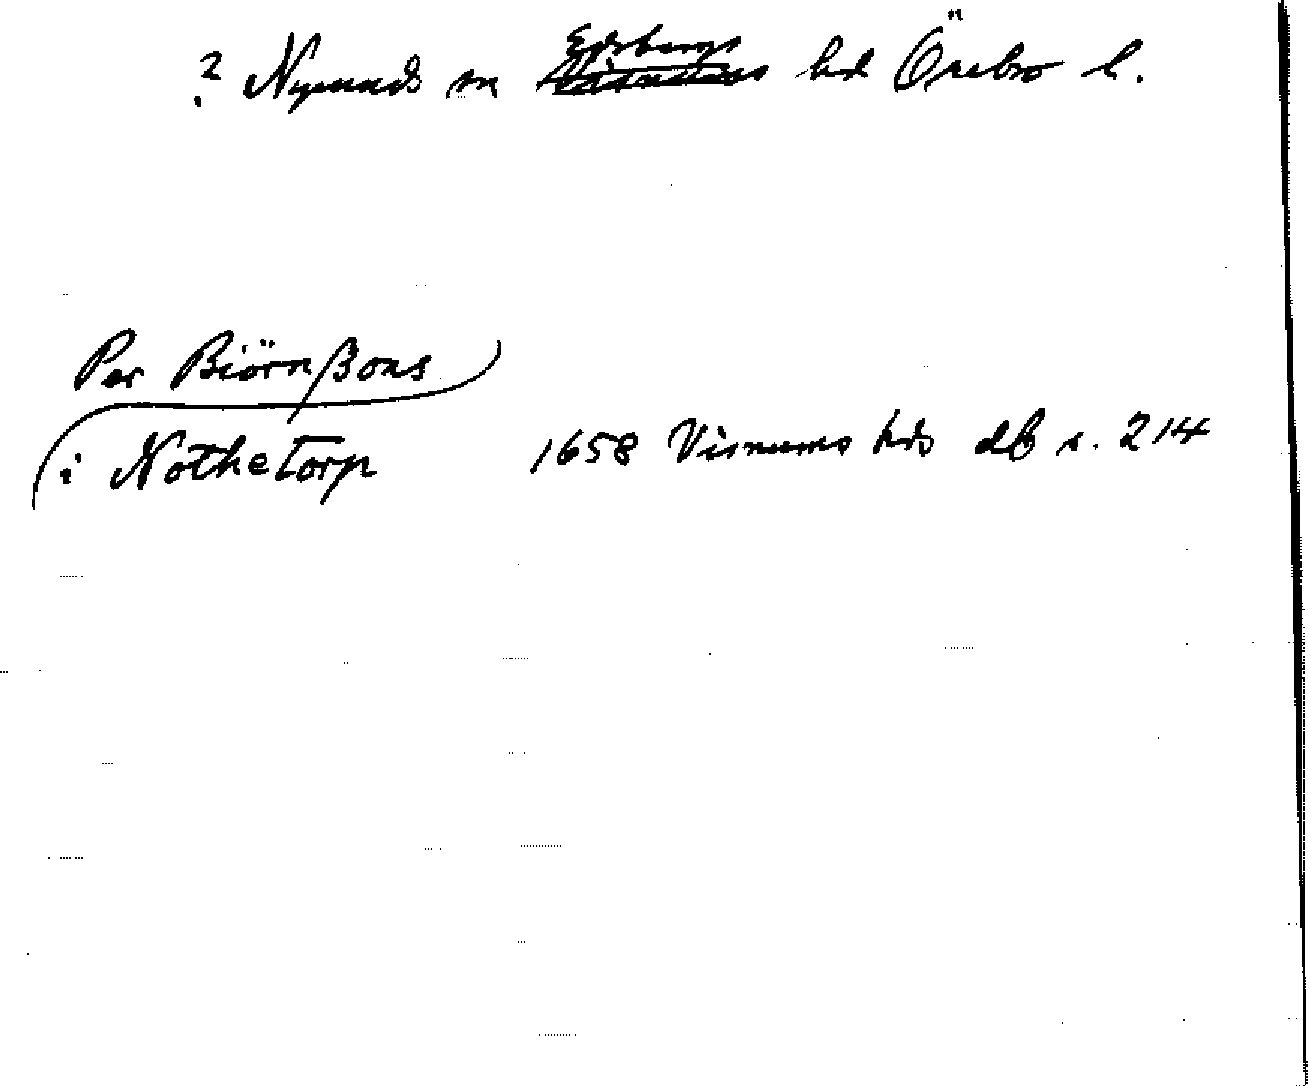 ? Nysunds sn Edsbergs hd Örebro l.
Per Biörnßons
i Nothetorp 1658 Visnums hds db s. 214